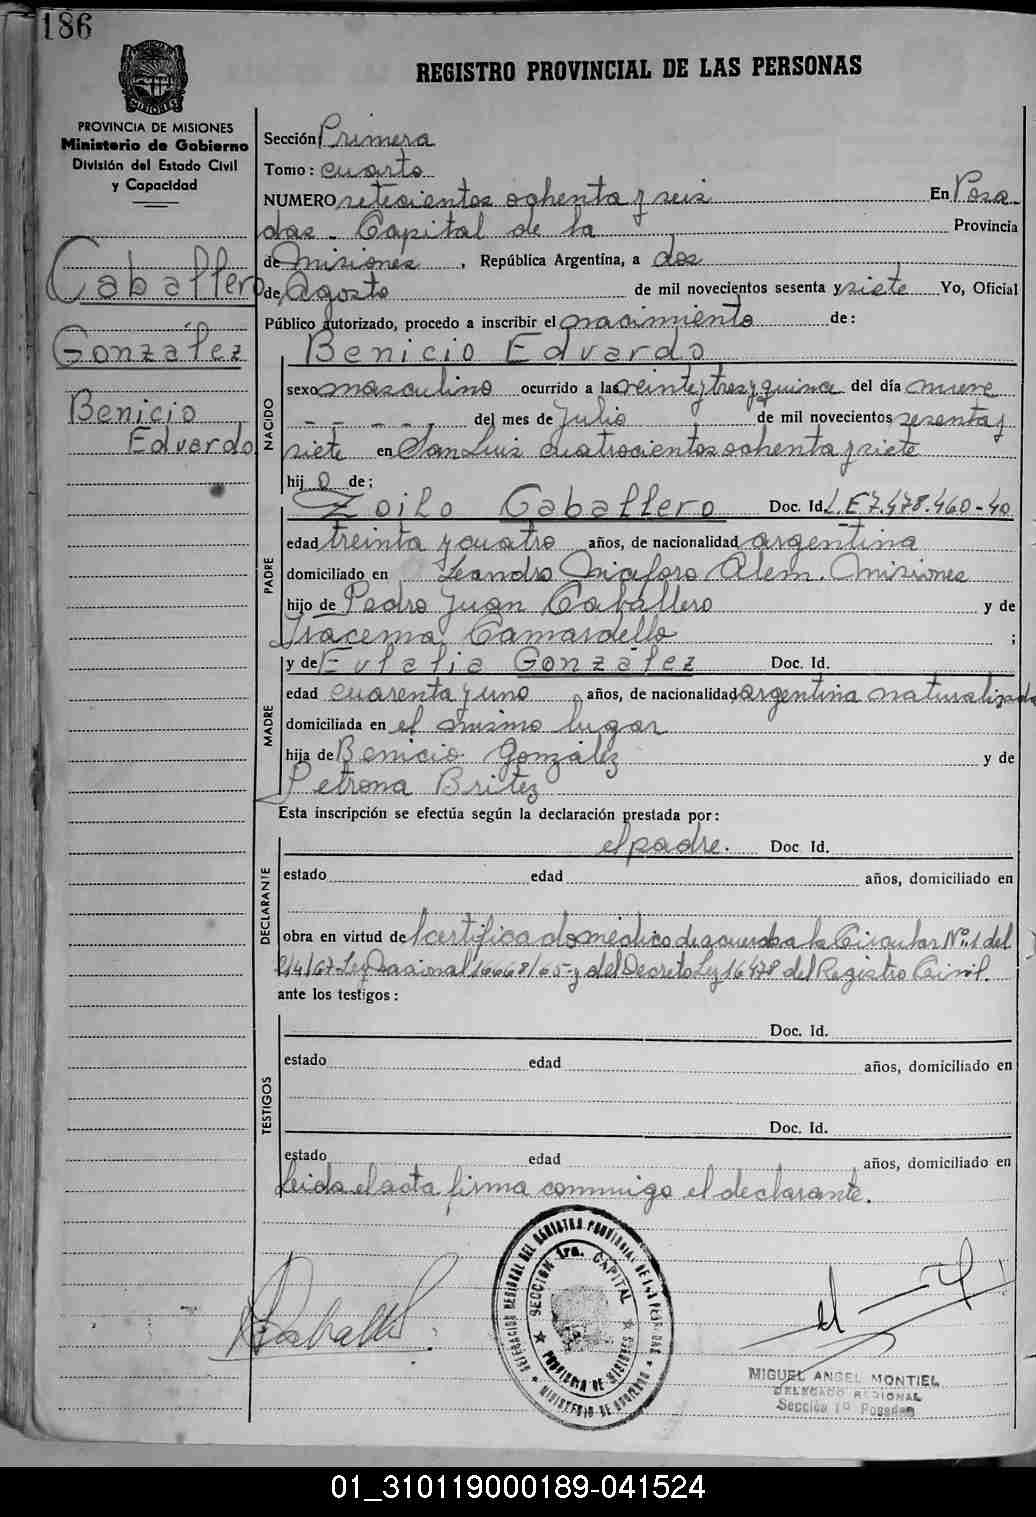 186
REGISTRO PROVINCIAL DE LAS PERSONAS
PROVINCIA DE MISIONES
Ministerio de Gobierno
División del Estado Civil
y Capacidad
Caballero
González
Benicio
Eduardo
Sección Primera
Tomo: cuarto
NUMERO setecientos ochenta y seis En Posa-
das - Capital de la Provincia
de Misiones, República Argentina, a dos
de Agosto de mil novecientos sesenta y siete Yo, Oficial
Público autorizado, procedo a inscribir el nacimiento de:
Benicio Eduardo
NACIDO
sexo masculino ocurrido a las veinte y tres y quince del día nueve
- - - - - del mes de Julio de mil novecientos sesenta y
siete en San Luis cuatrocientos ochenta y siete
hijo de:
PADRE
Zoilo Caballero Doc. Id. L.E 7.478.460-40
edad treinta y cuatro años, de nacionalidad argentina
domiciliado en Leandro Niceforo Alem. Misiones
hijo de Pedro Juan Caballero y de
Iracema Camardello ;
MADRE
y de Eulalia González Doc. Id.
edad cuarenta y uno años, de nacionalidad argentina naturalizada
domiciliada en el mismo lugar
hija de Benicio González y de
Petrona Britez
Esta inscripción se efectúa según la declaración prestada por:
DECLARANTE
el padre. Doc. Id.
estado edad años, domiciliado en
obra en virtud de certificado médico de acuerdo a la Circular Nº 1 del
/4/67-Ley Nacional 16668/65-y del Decreto Ley 16478 del Registro Civil.
ante los testigos:
TESTIGOS
Doc. Id.
estado edad años, domiciliado en
Doc. Id.
estado edad años, domiciliado en
Leida el acta firma conmigo el declarante.
DELEGACION REGIONAL DEL REGISTRO PROVINCIAL DE LAS PERSONAS
SECCION 1ra. CAPITAL
PROVINCIA DE MISIONES
MINISTERIO DE GOBIERNO
MIGUEL ANGEL MONTIEL
DELEGADO REGIONAL
Sección 1º Posadas
01_310119000189-041524